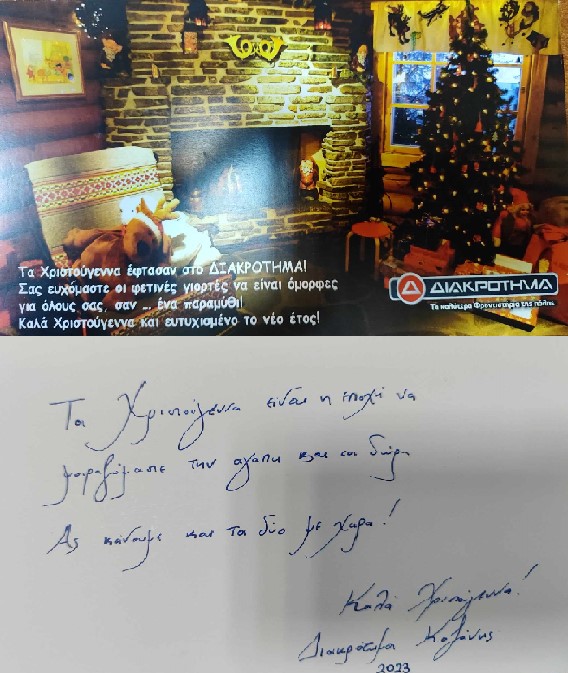 Τα Χριστούγεννα έφτασαν στο ΔΙΑΚΡΟΤΗΜΑ!
Σας ευχόμαστε οι φετινές γιορτές να είναι όμορφες
για όλους σας, σαν ... ένα παραμύθι!
Καλά Χριστούγεννα και ευτυχισμένο το νέο έτος!
ΔΙΑΚΡΟΤΗΜΑ
Τα καλύτερα Φροντιστήρια της πόλης
Τα Χριστούγεννα είναι η εποχή να
μοιραζόμαστε την αγάπη και τα δώρα
Ας κάνουμε και τα δύο με χαρά!
Καλά Χριστούγεννα!
Διακρότημα Κοζάνης
2023